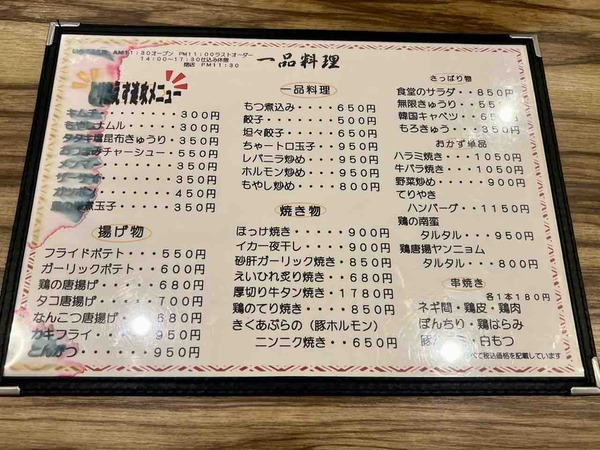 AM11:30オープン PM11:00ラストオーダー
14:00〜17:30仕込み休憩
閉店 PM11:30
一品料理
とりあえず速攻メニュー
キムチ・・・・・300円
もやしナムル・・・300円
タタキ塩昆布きゅうり・・350円
おつまみチャーシュー・・550円
メンマ・・・・・350円
ザーサイ・・・・350円
450円
鶏の味煮玉子・・・350円
揚げ物
フライドポテト・・・550円
ガーリックポテト・・600円
鶏の唐揚げ・・・680円
タコ唐揚げ・・・700円
なんこつ唐揚げ・・680円
カキフライ・・・950円
とんかつ・・・・950円
一品料理
もつ煮込み・・・650円
餃子・・・・・・500円
坦々餃子・・・・650円
ちゃートロ玉子・・950円
レバニラ炒め・・・950円
ホルモン炒め・・・950円
もやし炒め・・・・800円
焼き物
ほっけ焼き・・・・900円
イカ一夜干し・・・900円
砂肝ガーリック焼き・・850円
えいひれ炙り焼き・・680円
厚切り牛タン焼き・1780円
鶏のてり焼き・・・850円
きくあぶらの（豚ホルモン）
ニンニク焼き・・650円
さっぱり物
食堂のサラダ・・850円
無限きゅうり・・55
韓国キャベツ・・65
もろきゅう・・・350円
おかず単品
ハラミ焼き・・・1050円
牛バラ焼き・・・1050円
野菜炒め・・・・900円
てりやき
ハンバーグ・・1150円
鶏の南蛮
タルタル・・・950円
鶏唐揚ヤンニョム
タルタル・・・800円
串焼き
各1本180円
ネギ間・鶏皮・鶏肉
ぼんちり・鶏はらみ
豚・白もつ
すべて税込価格を記載しています